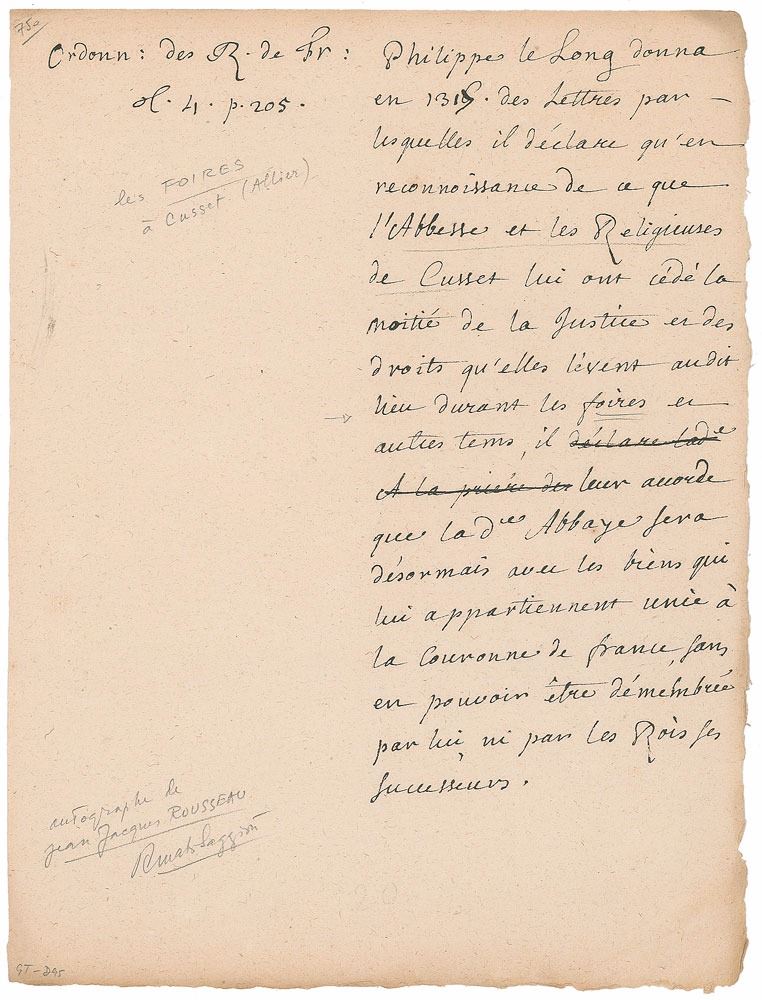 750
Ordonn: des R. de Fr:
t. 4. p. 205.
les FOIRES
à Cusset (Allier)
Philippe le Long donna
en 1318. des Lettres par
lesquelles il déclare qu'en
reconnoissance de ce que
l'Abbesse et les Religieuses
de Cusset lui ont cédé la
moitié de la Justice et des
droits qu'elles lèvent audit
lieu durant les foires et
autres tems, il déclare lade
A la prière des leur accorde
que lade Abbaye sera
désormais avec les biens qui
lui appartiennent unie à
la Couronne de france, sans
en pouvoir être démembrée
par lui, ni par les Rois ses
successeurs.
autographe de
Jean Jacques ROUSSEAU
Renato Saggiori